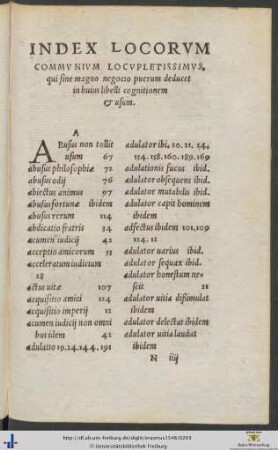 INDEX LOCORVM
COMMVNIVM LOCVPLETISSIMVS,
qui sine magno negocio puerum deducet
in huius libelli cognitionem
& usum.
A
ABusus non tollit
usum 67
abusus philosophiæ 72
abusus odij 76
abiectus animus 97
abusus fortunæ ibidem
abusus rerum 114
abdicatio fratris 34
acumen iudicij 42
acceptio amicorum 52
acceleratum iudicium
28
actus uitæ 107
acquisitio amici 114
acquisitio imperij 12
acumen iudicij non omni
bus idem 42
adulatio 19.24.14.4.191
adulator ibi. 20. 21. 24,
154. 158. 160. 189. 169
adulationis fucus ibid.
adulator obsequens ibid.
adulator mutabilis ibid.
adulator capit hominem
ibidem
adfectus ibidem 101,109
114. 12
adulator uarius ibid.
adulator sequax ibid.
adulator honestum ne=
scit 21
adulator uitia dissimulat
ibidem
adulator delectat ibidem
adulator uitia laudat
ibidem
N iiij
http://dl.ub.uni-freiburg.de/diglit/erasmus1548/0203
© Universitätsbibliothek Freiburg